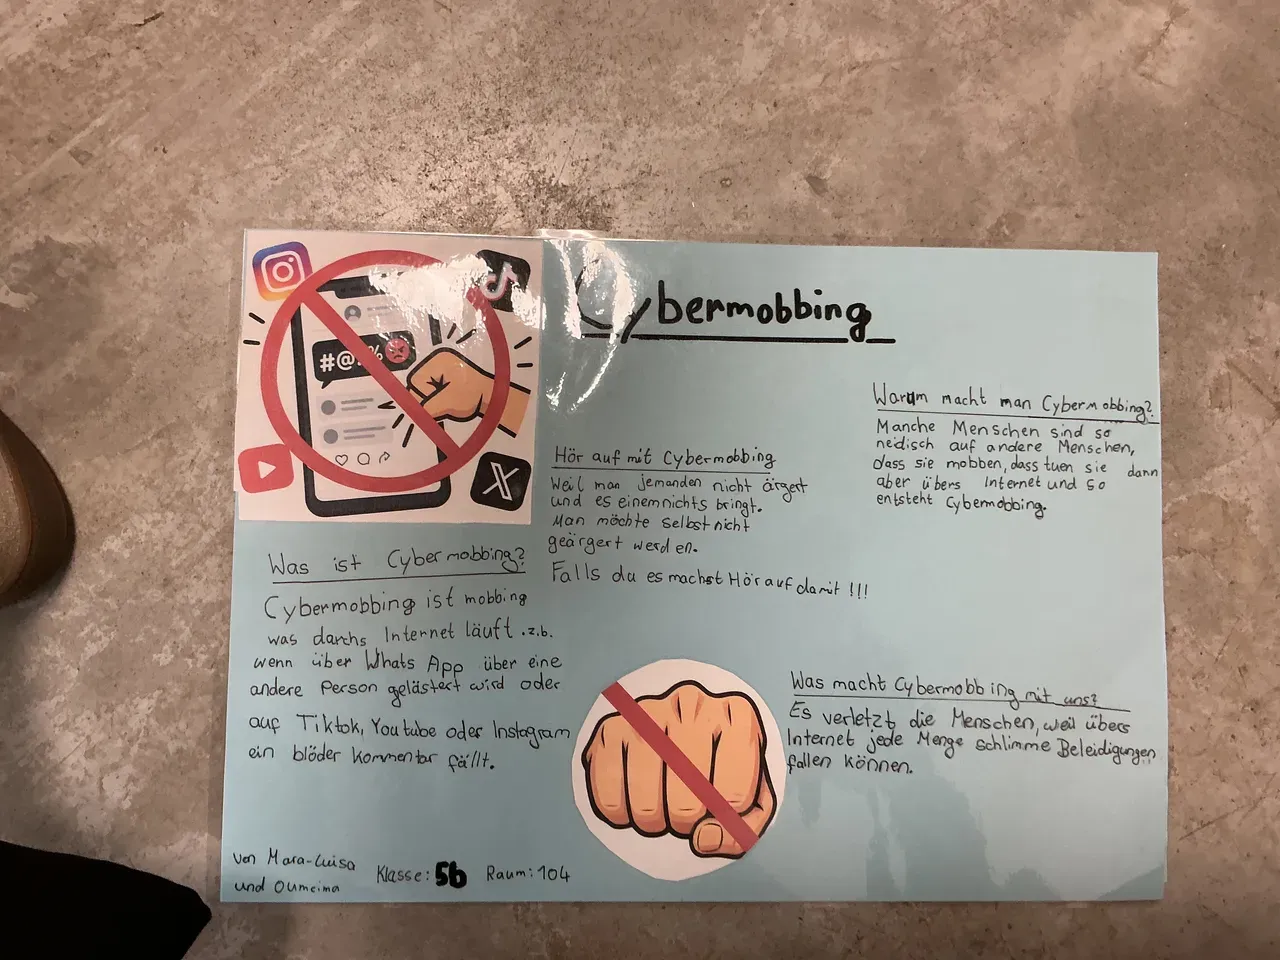 Cybermobbing
#@!%
Was ist Cybermobbing?
Cybermobbing ist mobbing
was darchs Internet läuft .z.b.
wenn über Whats App über eine
andere Person gelästert wird oder
auf Tiktok, Youtube oder Instagram
ein blöder Kommentar fällt.
Hör auf mit Cybermobbing
Weil man jemanden nicht ärgert
und es einem nichts bringt.
Man möchte selbst nicht
geärgert werden.
Falls du es machst Hör auf damit !!!
Warum macht man Cybermobbing?
Manche Menschen sind so
neidisch auf andere Menschen,
dass sie mobben, dass tuen sie dann
aber übers Internet und so
entsteht Cybermobbing.
Was macht Cybermobbing mit uns?
Es verletzt die Menschen, weil übers
Internet jede Menge schlimme Beleidigungen
fallen können.
von Mara-Luisa
und Oumeima
Klasse: 5b Raum: 104